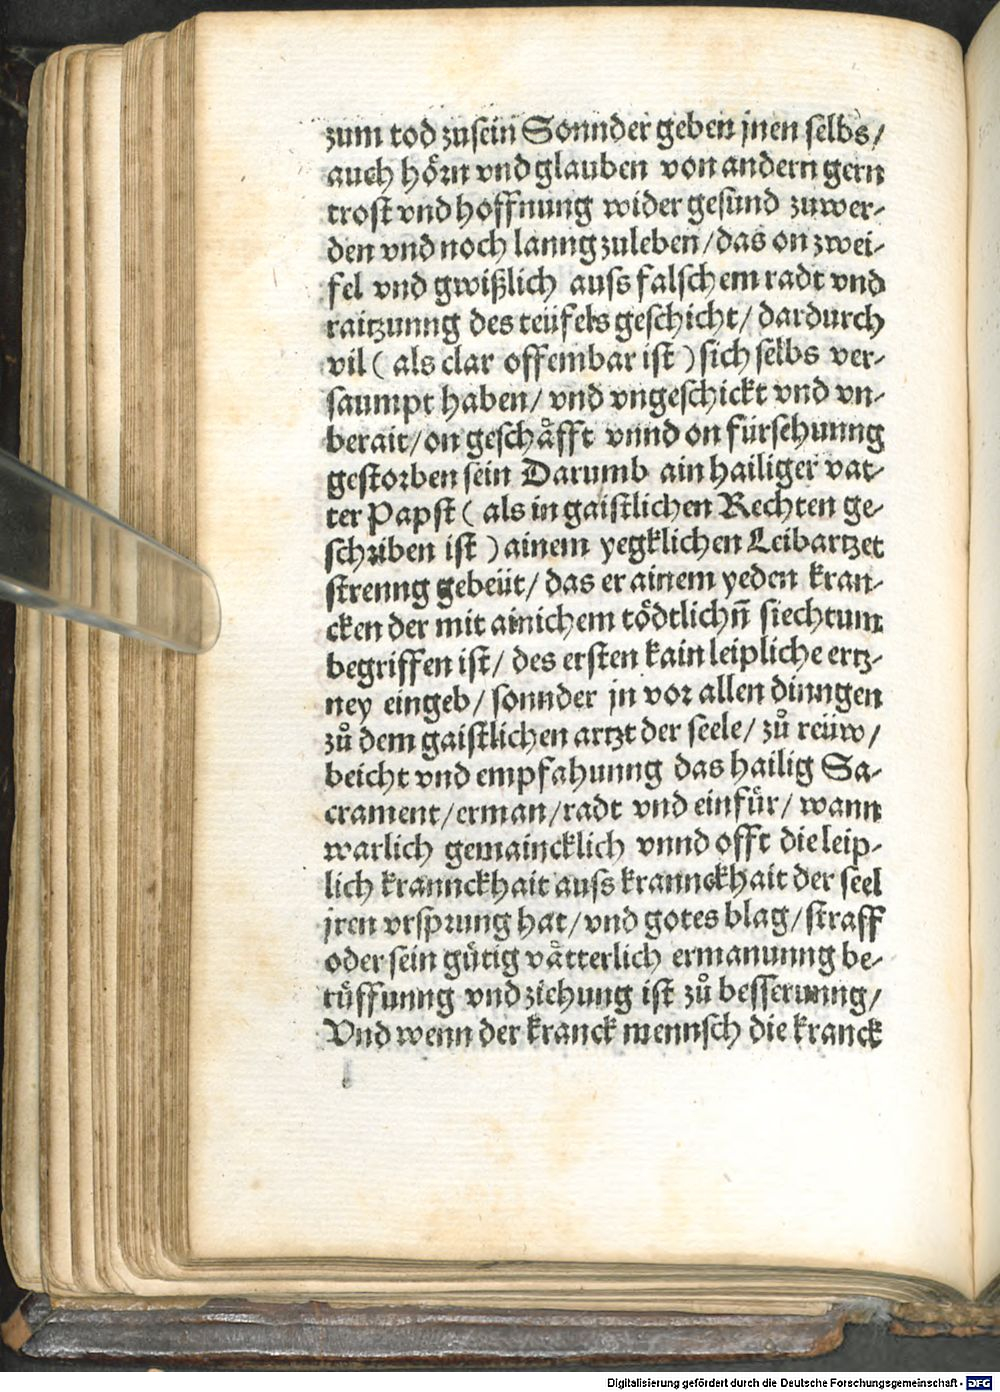 zum tod zusein Sonnder geben jnen selbs/
auch hörn vnd glauben von andern gern
trost vnd hoffnung wider gesund zuwer-
den vnd noch lanng zuleben/das on zwei-
fel vnd gwißlich auss falschem radt vnd
raitzunng des teüfels geschicht/ dardurch
vil ( als clar offembar ist ) sich selbs ver-
saumpt haben/ vnd vngeschickt vnd vn-
berait/on geschåfft vnnd on fürsehunng
gestorben sein Darumb ain hailiger vat-
ter Papst ( als in gaistlichen Rechten ge-
schriben ist ) ainem yegklichen Leibartzet
strenng gebeüt/ das er ainem yeden kran-
cken der mit ainichem tödtlichñ siechtum
begriffen ist/ des ersten kain leipliche ertz-
ney eingeb/ sonnder jn vor allen dinngen
zů dem gaistlichen artzt der seele/ zů reüw/
beicht vnd empfahunng das hailig Sa-
crament/erman/radt vnd einfür/ wann
warlich gemaincklich vnnd offt die leip-
lich krannckhait auss krannckhait der seel
jren vrsprung hat/vnd gotes blag/straff
oder sein gütig våtterlich ermanunng be-
rüffunng vnd ziehung ist zů besserunng/
Vnd wenn der kranck mennsch die kranck
Digitalisierung gefördert durch die Deutsche Forschungsgemeinschaft - DFG